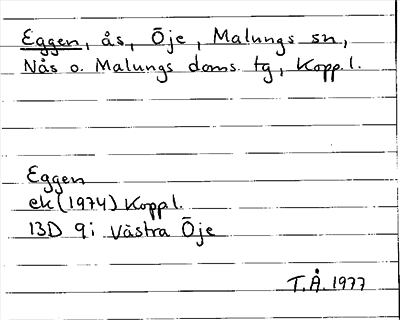 Eggen, ås, Öje, Malungs sn,
Nås o. Malungs doms. tg, Kopp.l.
Eggen
ek (1974) Koppl.
13D 9i Västra Öje
T.Å. 1977